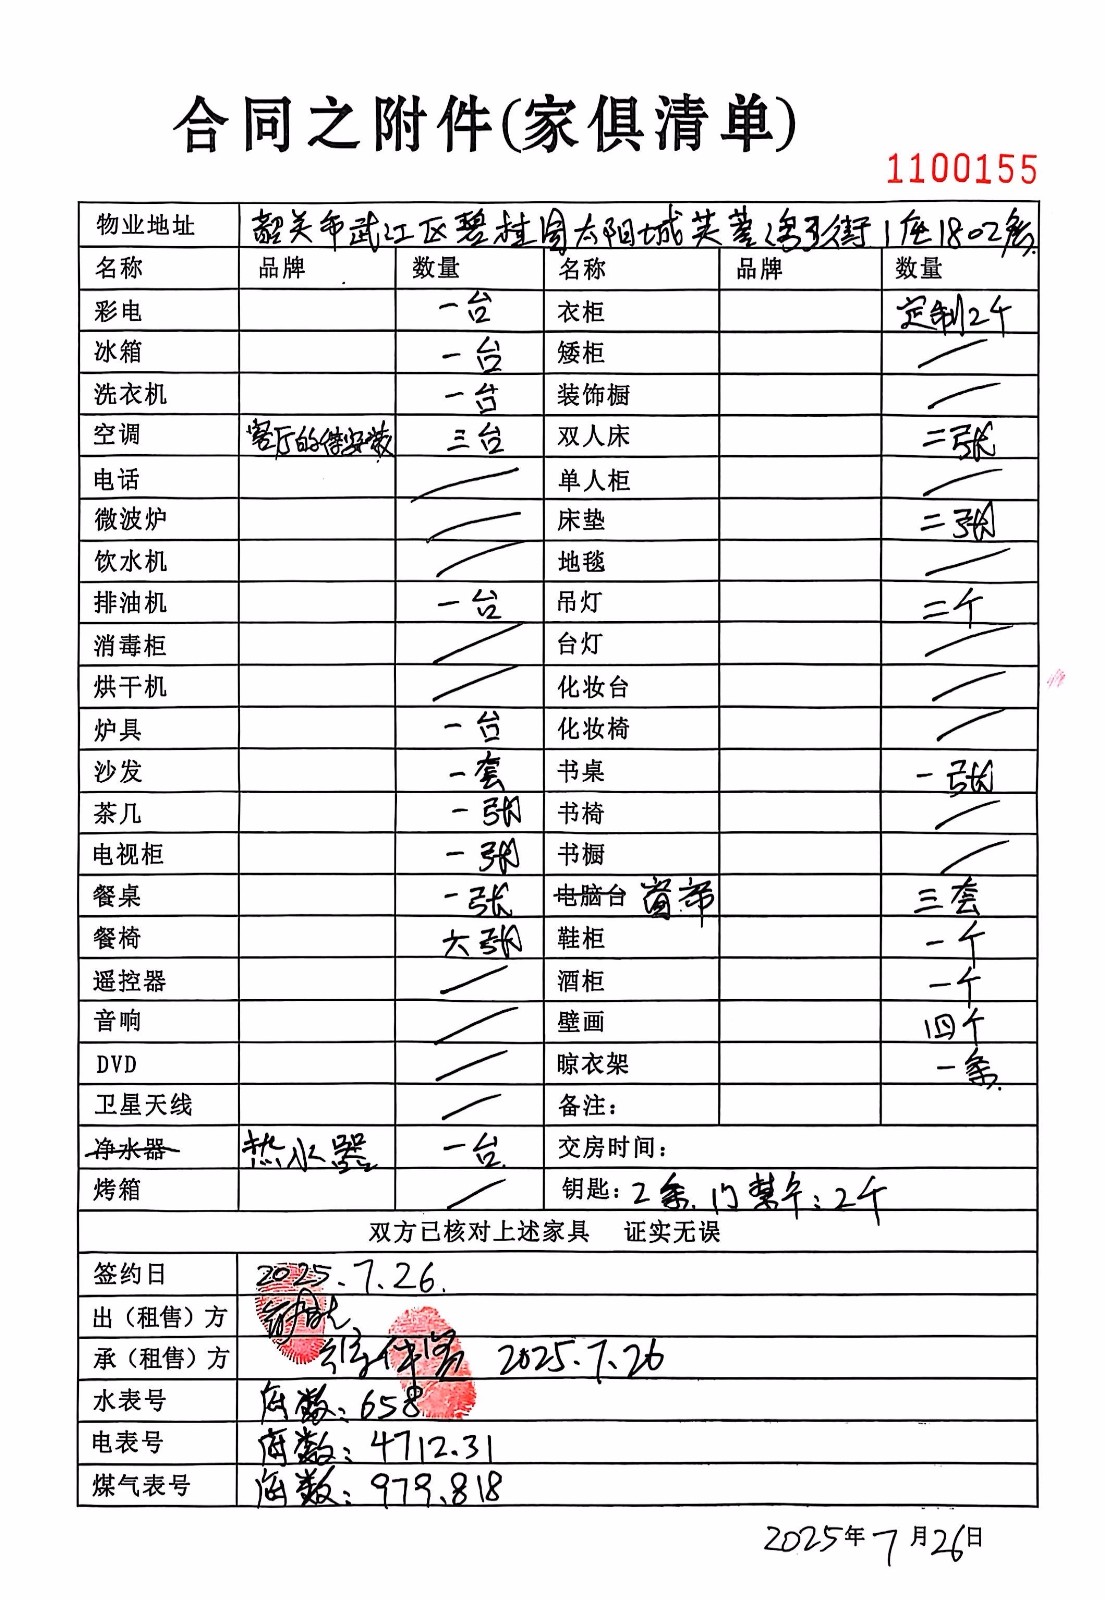 合同之附件(家俱清单)
1100155
物业地址 韶关市武江区碧桂园太阳城芙蓉湾3街1座1802房
名称 品牌 数量 名称 品牌 数量
彩电 一台 衣柜 定制2个
冰箱 一台 矮柜 /
洗衣机 一台 装饰橱 /
空调 客厅的待安装 三台 双人床 二张
电话 / 单人柜 /
微波炉 / 床垫 二张
饮水机 / 地毯 /
排油机 一台 吊灯 二个
消毒柜 / 台灯 /
烘干机 / 化妆台 /
炉具 一台 化妆椅 /
沙发 一套 书桌 一张
茶几 一张 书椅 /
电视柜 一张 书橱 /
餐桌 一张 电脑台 窗帘 三套
餐椅 六张 鞋柜 一个
遥控器 / 酒柜 一个
音响 / 壁画 四个
DVD / 晾衣架 一条
卫星天线 / 备注：
净水器 热水器 一台 交房时间：
烤箱 / 钥匙：2条 门禁卡：2个
双方已核对上述家具 证实无误
签约日 2025.7.26.
出（租售）方
承（租售）方 2025.7.26
水表号 底数：658
电表号 底数：4712.31
煤气表号 底数：979.818
2025年7月26日